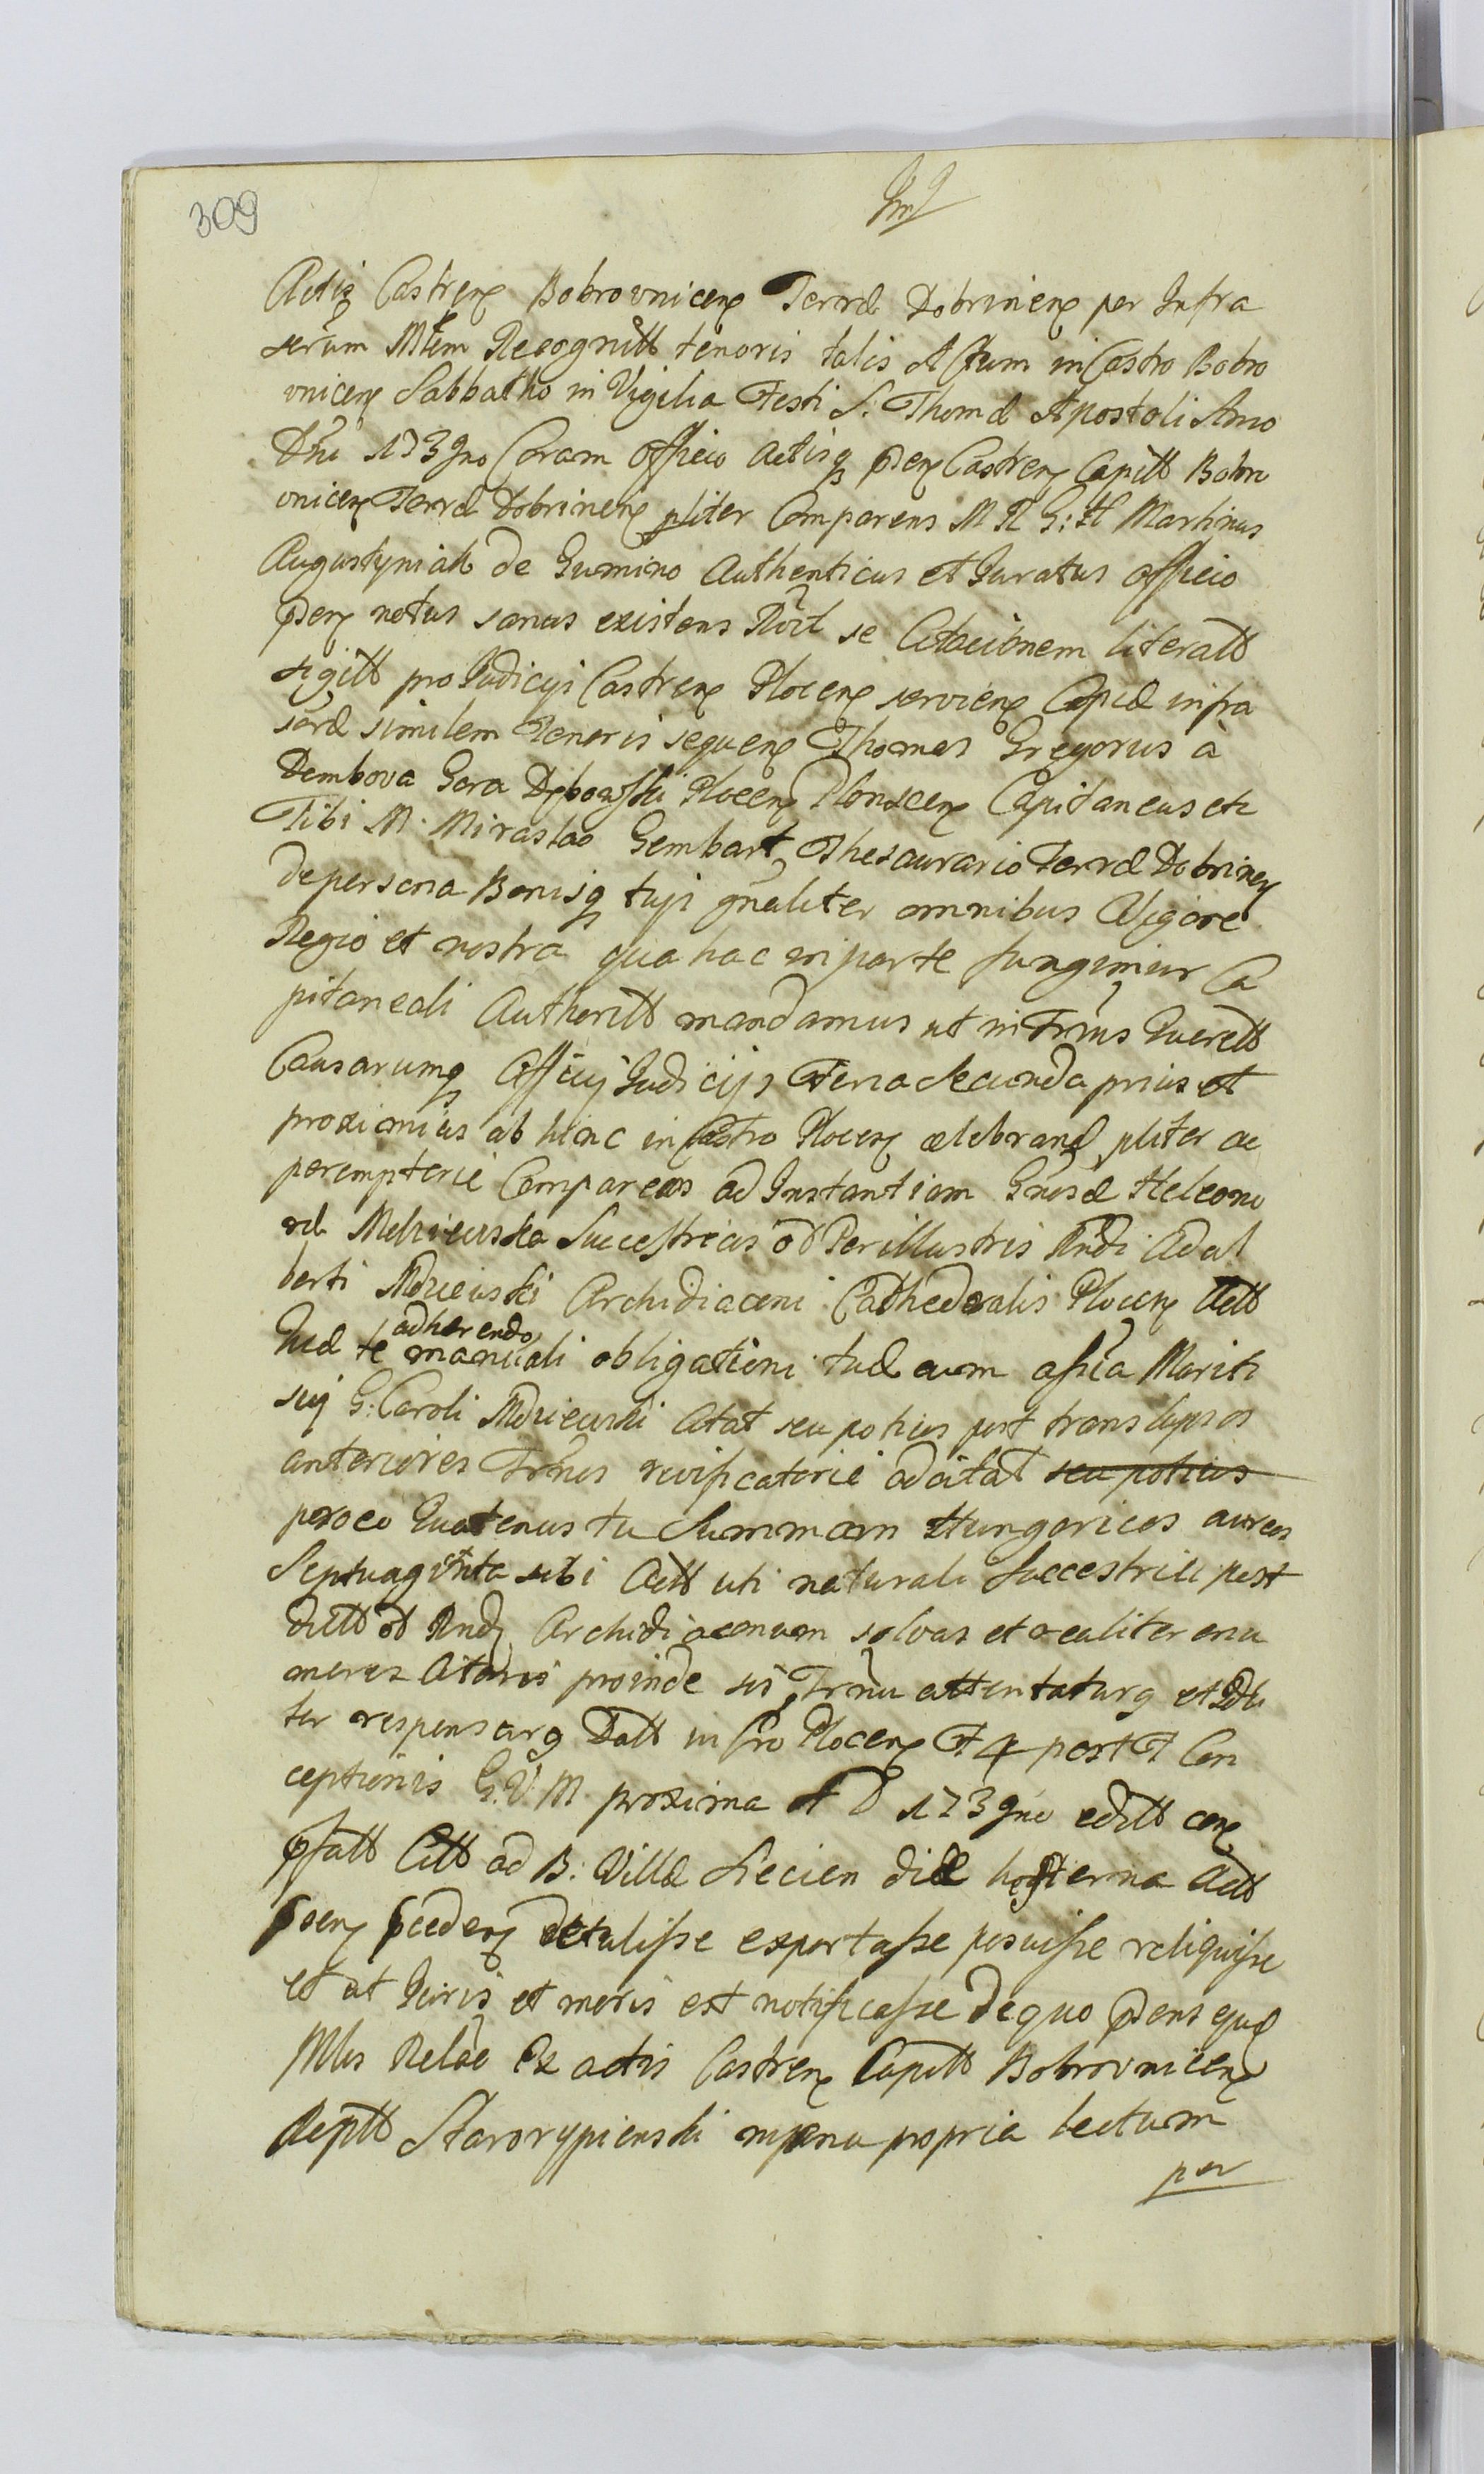 309
Actis Castren Bobrovnicen Terræ Dobrinen per Infra
serum Mtem Recognitt tenoris talis Actum in Castro Bobro
vnicen Sabbatho in Vigilia Festi S. Thomæ Apostoli Anno
Dni 1739no Coram Officio Actisq pnen Castren Capitt Bobro
vnicen Terræ Dobrinen pliter Comparens M R G: H Martinus
Augustyniak de Gumino Authenticus et Juratus officio
pnen notus sanus existens Rlit se Citacionem literatt
sigitt pro Judicijs Castren Plocen servien Copiæ infra
scræ similem Tenoris sequen Thomas Gregorius à
Dembova Gora Dębowski Plocen Plonscen Capitaneus etc
Tibi M. Miraslao Gembart Thesaurario Terræ Dobrinen
de persona Bonisq tuis gnaliter omnibus Vigore
Regio et nostra qua hac in parte fungimur Ca
pitaneali Authoritt mandamus ut in Trnis Querell
Causarumq Officij Judicijs Feria Secunda prius et
proximius ab hinc in Castro Plocen celebrand pliter ac
peremptorie Compareas ad Instantiam Gnosæ Heleono
ræ Mdziewska Succestricis od Perillustris Rndi Adal
berti Mdziewski Archidiaconi Cathedralis Plocen Actt
Quæ te adhærendo manuali obligationi tuæ cum assia Mariti
sui G: Caroli Mdziewski Citat seu potius post translapsos
anteriores Trnos revificatorie adcitat seu potius
pro eo Quatenus tu Summam Hungaricos aureos
Septuaginta sibi Actt uti naturali Succestrici post
dictt od Rndi Archidiaconum solvas et realiter enu
meres Citaris proinde sis Trnu attentaturq et Jdli
ter responsarq Datt in Cro Plocen F 4 post F Con
ceptionis G. V. M proxima A D 1739no editt cen
pfatt Citt ad B: Villæ Lecien die hesterna Actt
pnen pceden detulisse exportasse posuisse reliquisse
et ut Juris et moris est notificasse de quo pnens ejus
Mlis Relao Ex actis Castren Capitt Bobrovnicen
Reptt Starorypienski manu propria lectum
per